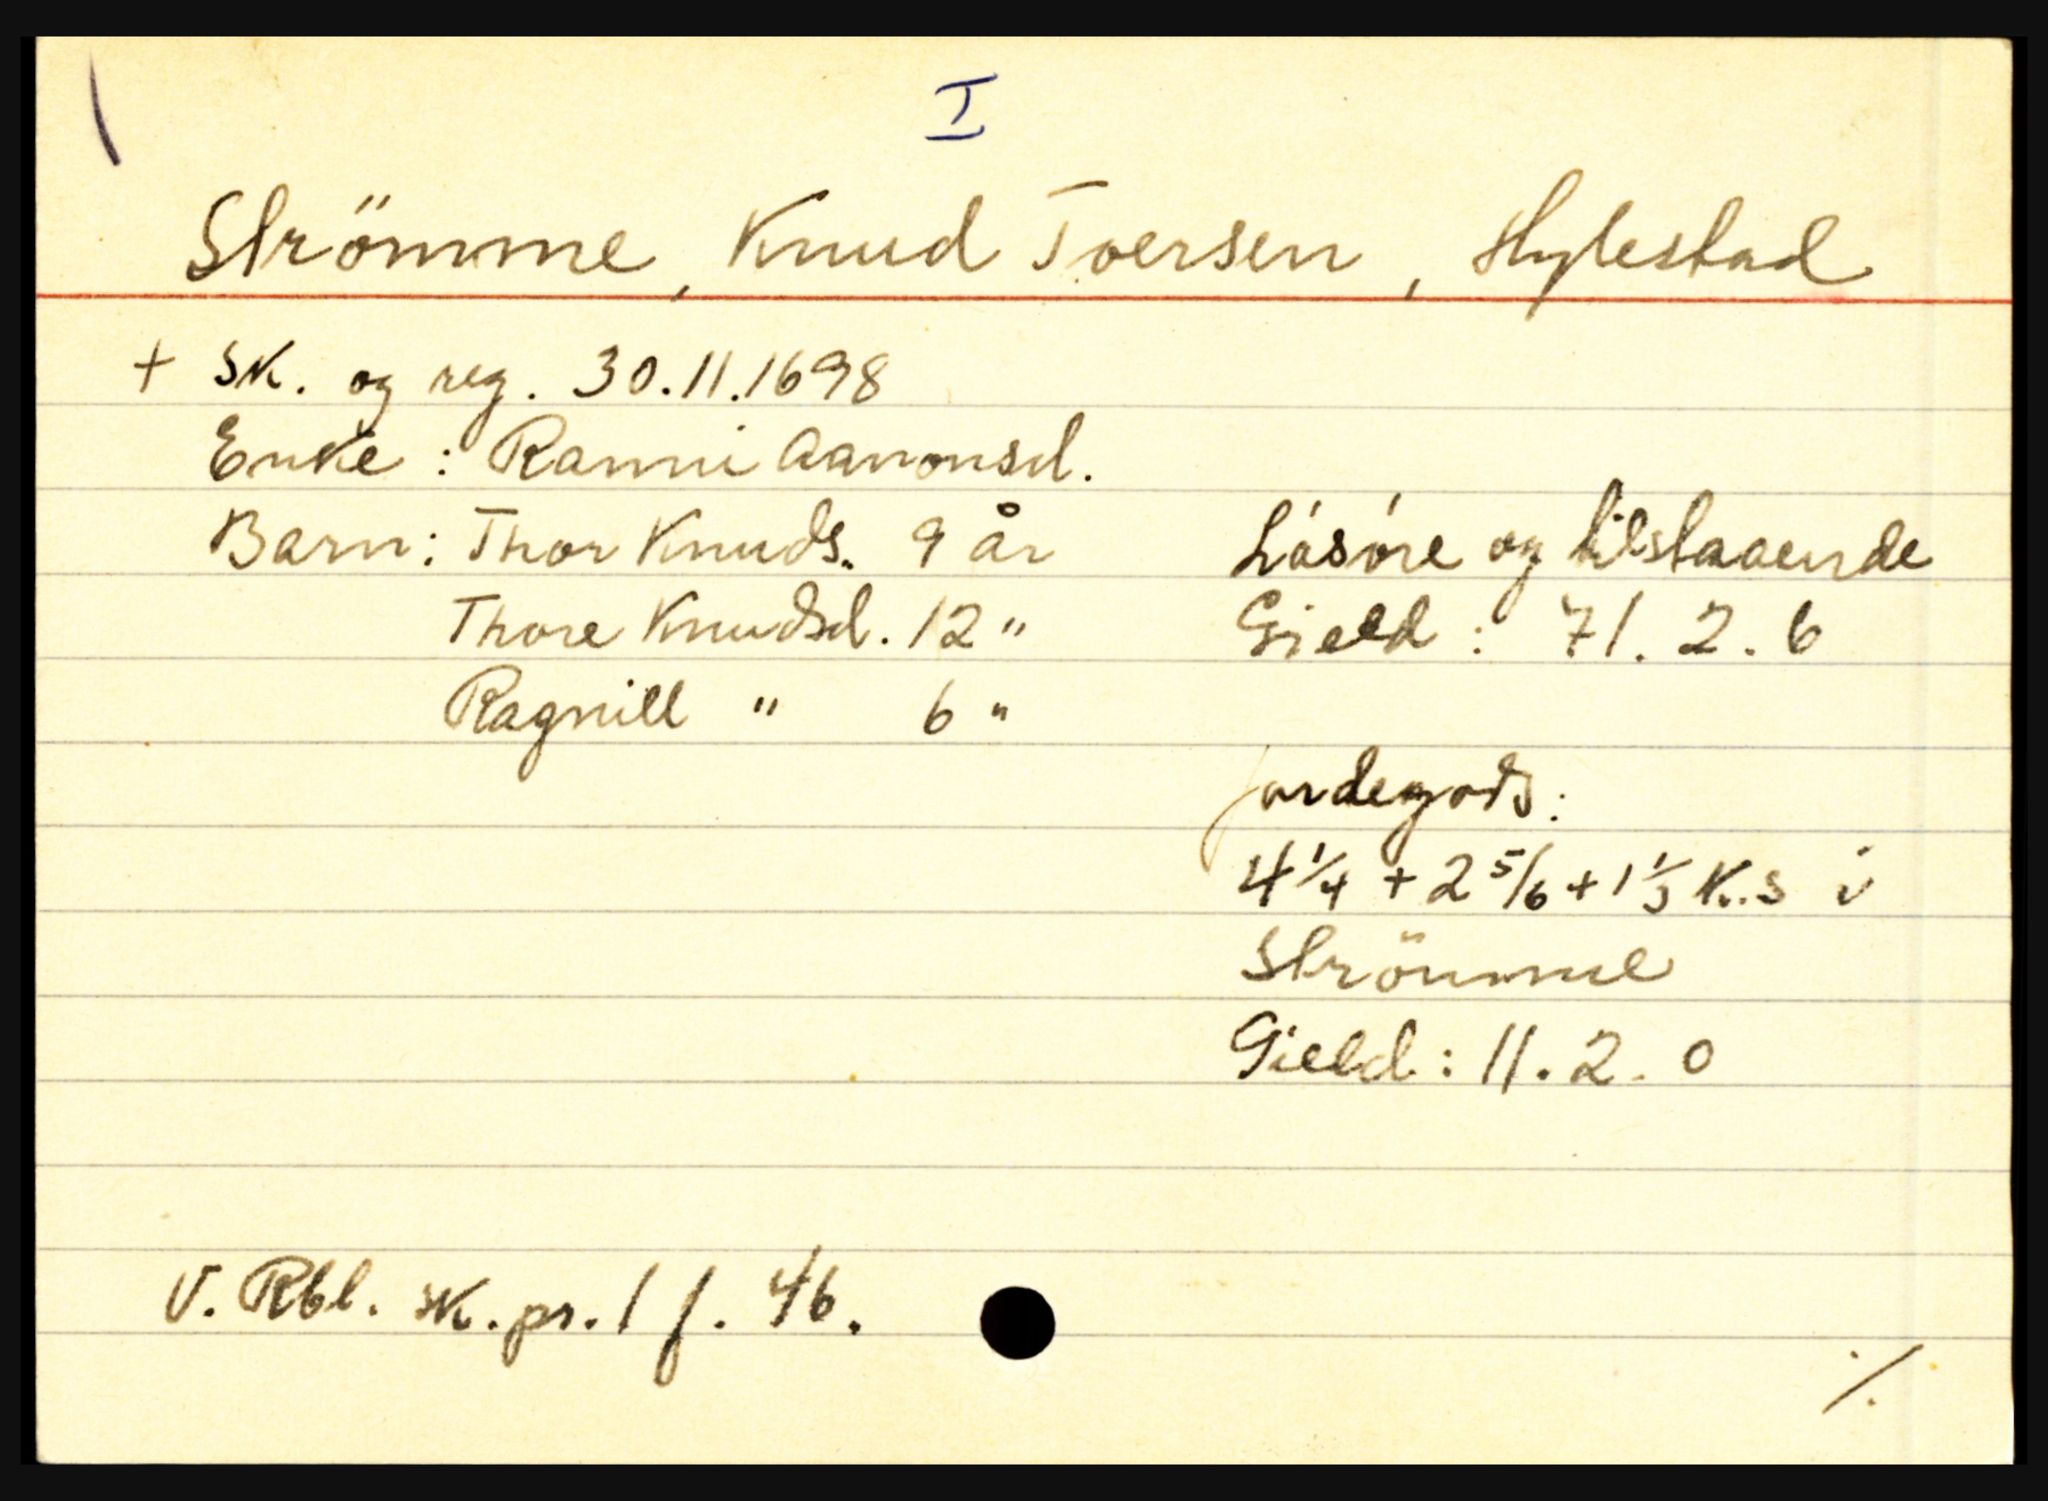 I
Strömme, Knud Toersen, Hylestad
+ sk. og reg. 30.11.1698
Enke: Ranni Aanonsd.
Barn: Thor Knuds. 9 år
Thore Knudsd. 12 "
Ragnill " 6 "
Lösöre og tilstaaende
Gield: 71.2.6
Jordegods:
4 1/4 + 2 5/6 + 1 1/3 K.s i
Strömme
Gield: 11.2.0
V. Rbl. sk. pr. 1 f. 46.
./.